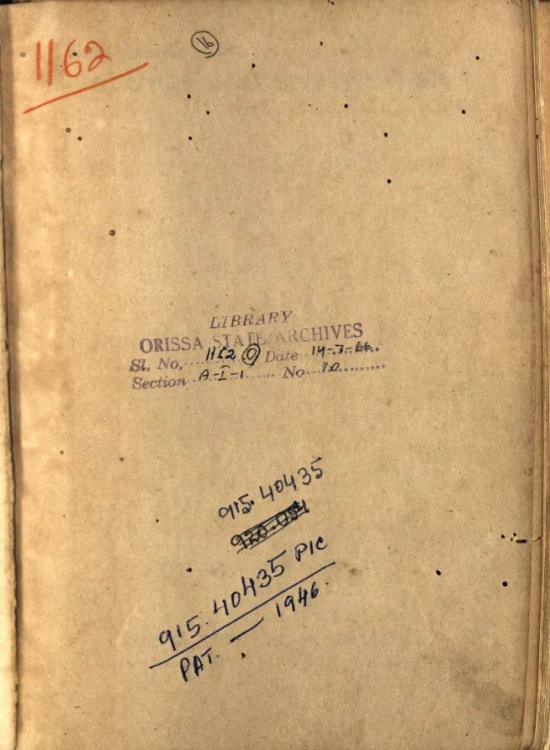 1162
16
LIBRARY
ORISSA STATE ARCHIVES
Sl. No. 1162 Date 14-7-66
Section A-I-1 No 10
915.40435
915.40435 PIC
PAT. — 1946.